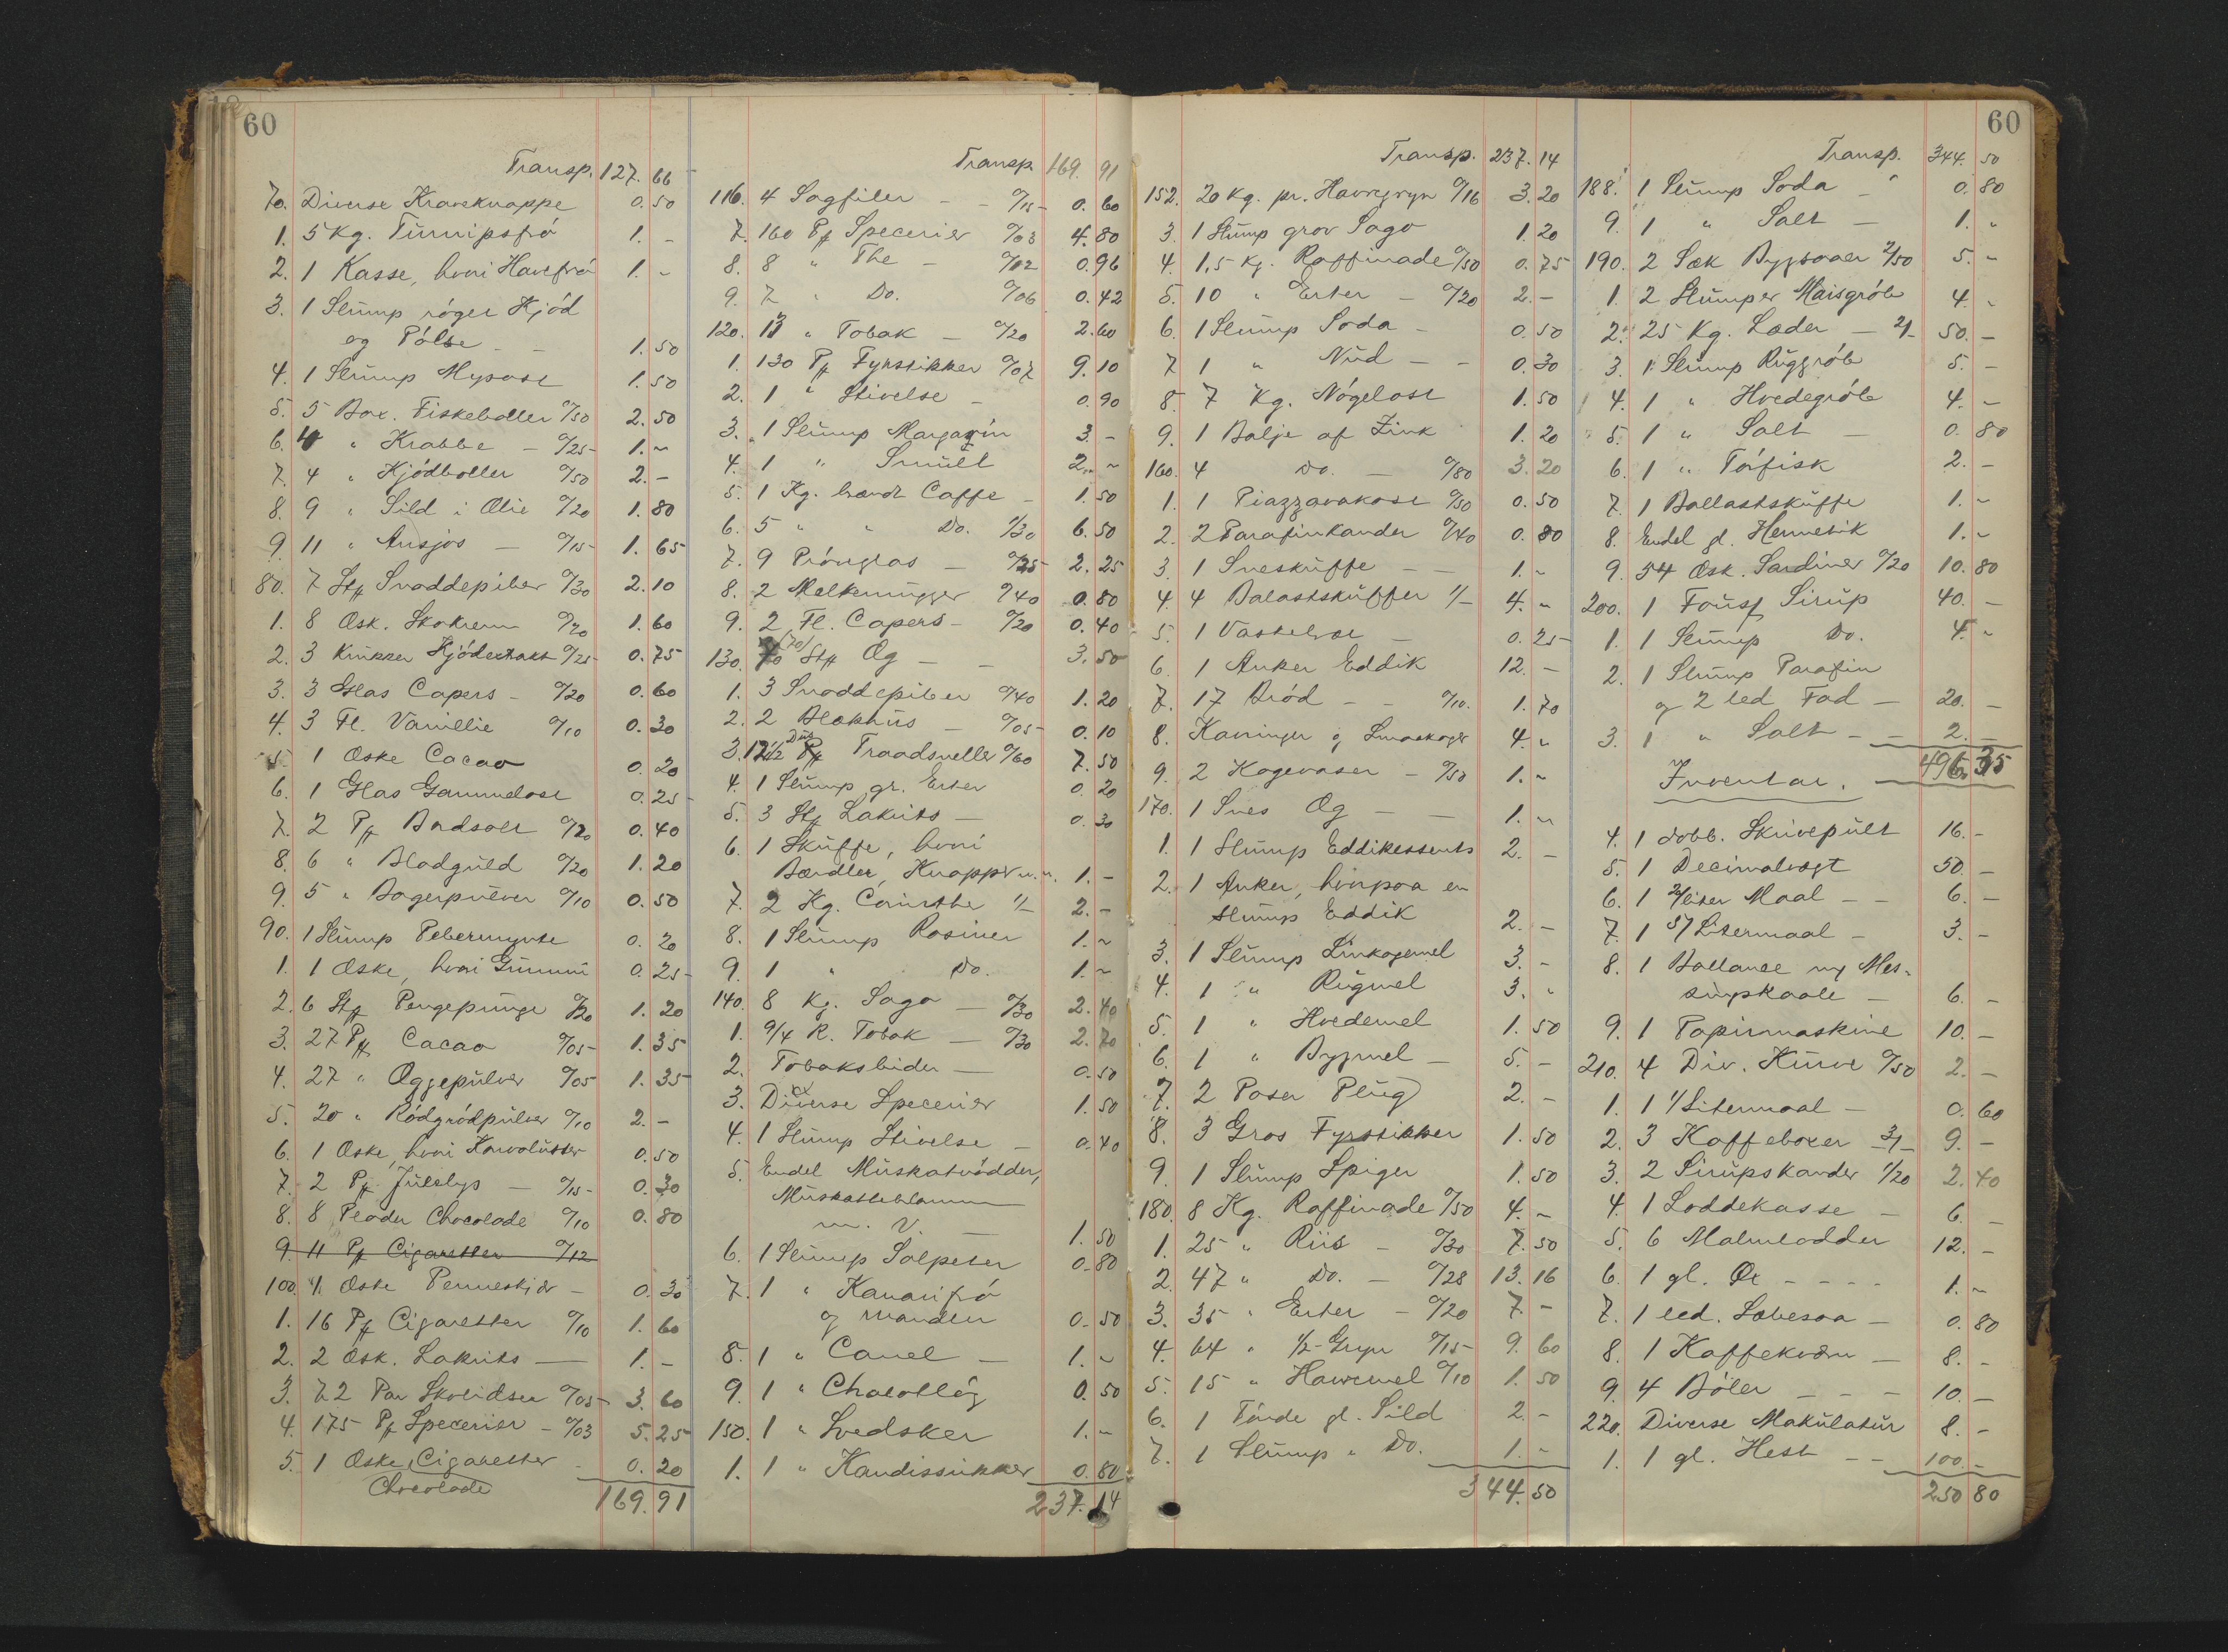 60
Transp. 127.66
70. Diverse Kraveknappe 0.50
1. 5 Kg. Turnipsfrö 1.-
2. 1 Kasse, hvori Havefrö 1.-
3. 1 Slump röget Kjöd
og Pölse - - 1.50
4. 1 Slump Mysost 1.50
5. 5 Box. Fiskeboller 0/50 2.50
6. 4 " Krabbe - 0/25 1.-
7. 4 " Kjödboller 0/50 2.-
8. 9 " Sild i Olie 0/20 1.80
9. 11 " Ansjos - 0/15 1.65
80. 7 Stk Snaddepiber 0/30 2.10
1. 8 Æsk. Skokrem 0/20 1.60
2. 3 Krukker Kjödextakt 0/25 0.75
3. 3 Glas Capers - 0/20 0.60
4. 3 Fl. Vanillie 0/10 0.30
5. 1 Æske Cacao 0.20
6. 1 Glas Gammelost 0.25
7. 2 Pk Bordsalt 0/20 0.40
8. 6 " Bladguld 0/20 1.20
9. 5 " Bagerpulver 0/10 0.50
90. 1 Slump Pebermynte 0.20
1. 1 Æske, hvori Gummi 0.25
2. 6 Stk Pengepunge 0/20 1.20
3. 27 Pk Cacao 0/05 1.35
4. 27 " Æggepulver 0/05 1.35
5. 20 " Rödgrödpulver 0/10 2.-
6. 1 Æske, hvori 0.50
7. 2 Pk Julelys - 0/15 0.30
8. 8 Plader Chocolade 0/10 0.80
9. 11 Pk Cigaretter 0/12
100. 1 Æske Penneskjær - 0.30
1. 16 Pk Cigaretter 0/10 1.60
2. 2 Æsk. Lakrits - 1.-
3. 72 Par Skolidser 0/05 3.60
4. 175 Pk Specerier - 0/03 5.25
5. 1 Æske Cigaretter - 0.20
Chocolade
169.91
Transp 169.91
116. 4 Sagfiler - - 0/15 0.60
7. 160 Pk Specerier 0/03 4.80
8. 8 " The - 0/12 0.96
9. 7 " Do. 0/06 0.42
120. 13 " Tobak - 0/20 2.60
1. 130 Pk Fyrstikker 0/07 9.10
2. 1 " Stivelse - 0.90
3. 1 Slump Margarin 3.-
4. 1 " Smult 2.-
5. 1 Kg. brændt Caffe - 1.50
6. 5 " " Do. 1/30 6.50
7. 9 Prönglas - 0/25 2.25
8. 2 Melkemugger 0/40 0.80
9. 2 Fl. Capers - 0/20 0.40
130. 70 (70) Stk Æg - - 3.50
1. 3 Snaddepiber 0/40 1.20
2. 2 Blækhus - 0/05 0.10
3. 12 1/2 Dus Pk Traadsneller 0/60 7.50
4. 1 Slump gr. Erter 0.20
5. 3 Stk Lakrits - 0.30
6. 1 Skuffe, hvori
Bændler, Knapper m.m. 1.-
7. 2 Kg. Corinther 1/- 2.-
8. 1 Slump Rosiner 1.-
9. 1 " Do. 1.-
140. 8 Kg. Sago - 0/30 2.40
1. 9/4 R. Tobak - 0/30 2.70
2. Tobaksbider - 0.50
3. Diverse Specerier 1.50
4. 1 Slump Stivelse - 0.40
5. Endel Muskatnödder,
Muskatteblomme
m. V. - 1.50
6. 1 Slump Salpeter 0.80
7. 1 " Kanarifrö
og Mandler 0.50
8. 1 " Canel - 1.-
9. 1 " Chalotlög 0.50
150. 1 " Svedsker 1.-
1. 1 " Kandissukker 0.80
237.14
Transp. 237.14
152. 20 Kg. pr. Havregryn 0/16 3.20
3. 1 Slump grov Sago 1.20
4. 1,5 Kg. Raffinade 0/50 0.75
5. 10 " Erter - 0/20 2.-
6. 1 Slump Soda - 0.50
7. 1 " Nud - - 0.30
8. 7 Kg. Nögelost 1.50
9. 1 Balje af Zink 1.20
160. 4 Do. - 0/80 3.20
1. 1 Piazzavakost 0/50 0.50
2. 2 Parafinkander 0/40 0.80
3. 1 Sneskuffe - - 1.-
4. 4 Balastskuffer 1/- 4.-
5. 1 - 0.25
6. 1 Anker Eddik 12.-
7. 17 Bröd - - 0/10. 1.70
8. Kavringer og Smaakager 4.-
9. 2 Kagevaser - 0/50 1.-
170. 1 Snes Æg - - 1.-
1. 1 Slump Eddikessents 2.-
2. 1 Anker, hvorpaa en
Slump Eddik 2.-
3. 1 Slump Linkagemel 3.-
4. 1 " Rugmel 3.-
5. 1 " Hvedemel 1.50
6. 1 " Bygmel - 5.-
7. 2 Poser Plug 2.-
8. 3 Gros Fyrstikker 1.50
9. 1 Slump Spiger 1.50
180. 8 Kg. Raffinade 0/50 4.-
1. 25 " Riis - 0/30 7.50
2. 47 " Do. - 0/28 13.16
3. 35 " Erter - 0/20 7.-
4. 64 " 1/2-Gryn 0/15 9.60
5. 15 " Havremel 0/10 1.50
6. 1 Tönde gl. Sild 2.-
7. 1 Slump " Do. 1.-
344.50
60
Transp. 344.50
188. 1 Slump Soda - 0.80
9. 1 " Salt - 1.-
190. 2 Sæk Bygsaaer 2/50 5.-
1. 2 Slumper Maisgröb 4.-
2. 25 Kg. Læder - 2/- 50.-
3. 1 Slump Ruggröb 5.-
4. 1 " Hvedegröb 4.-
5. 1 " Salt - 0.80
6. 1 " Törfisk 2.-
7. 1 Ballastskuffe 1.-
8. Endel gl. Hermetik 1.-
9. 54 Æsk. Sardiner 0/20 10.80
200. 1 Foust Sirup 40.-
1. 1 Slump Do. 4.-
2. 1 Slump Parafin
og 2 led Fad - 20.-
3. 1 " Salt - - 2.-
496.35
Inventar.
4. 1 dobb. Skrivepult 16.-
5. 1 Decimalvægt 50.-
6. 1 2/liter Maal - - 6.-
7. 1 5/Litermaal - 3.-
8. 1 Ballance m/ Mes-
singskaale - 6.-
9. 1 Papirmaskine 10.-
210. 4 Div. Kurve 0/50 2.-
1. 1 1/Litermaal - 0.60
2. 3 Kaffeboxer 3/- 9.-
3. 2 Sirupskander 1/20 2.40
4. 1 Loddekasse - 6.-
5. 6 Malmlodder 12.-
6. 1 gl. Øx - - - - 1.-
7. 1 led. - 0.80
8. 1 Kaffekværn - 8.-
9. 4 Böler - - - 10.-
220. Diverse Makulatur 8.-
1. 1 gl. Hest - - 100.-
250 80